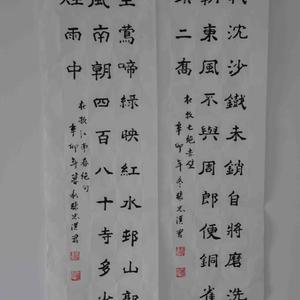 沈沙鐵未銷自將磨洗
朝東風不與周郎便銅雀
二喬
杜牧七絕赤壁
辛卯年冬
里鶯啼綠映紅水邨山郭
風南朝四百八十寺多少
煙雨中
杜牧江南春絕句
辛卯年暮秋